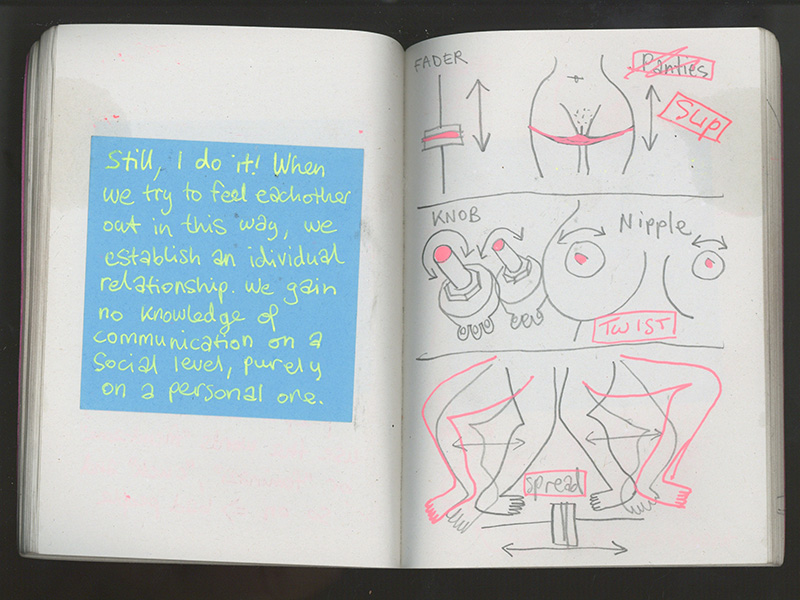 Still, I do it! When
we try to feel eachother
out in this way, we
establish an idividual
relationship. We gain
no knowledge of
communication on a
Social level, purely
on a personal one.
FADER
Panties
SLIP
KNOB
Nipple
TWIST
spread